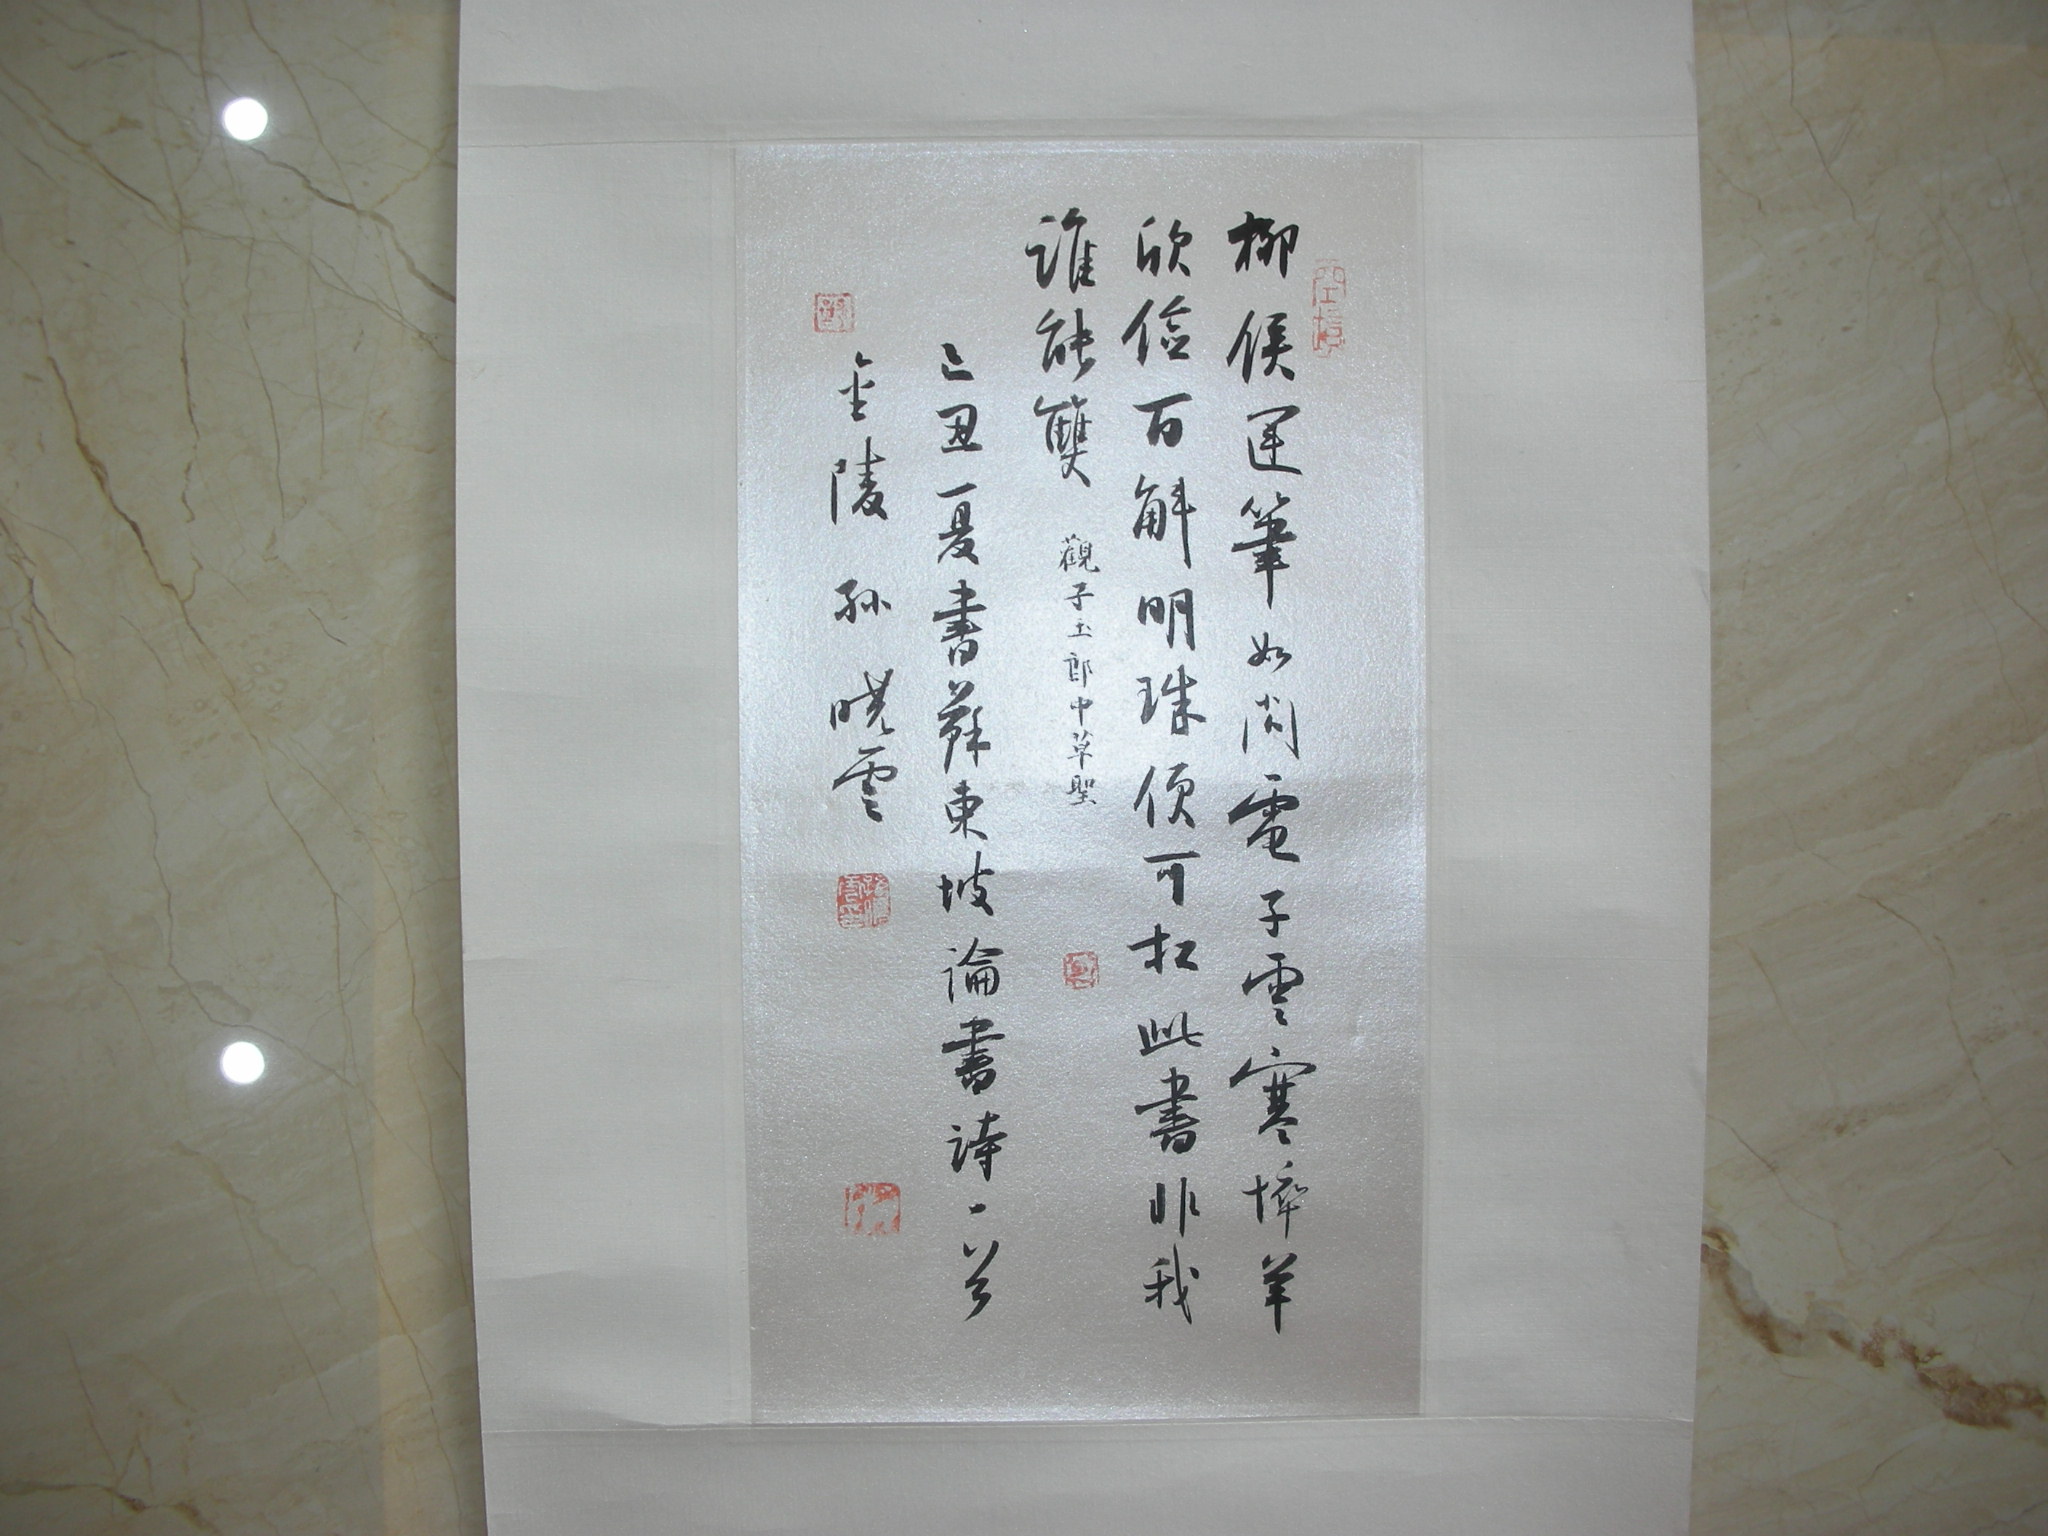 柳侯運筆如閃電子雲寒悴羊
欣儉百斛明珠便可扛此書非我
誰能雙
觀子玉郎中草聖
己丑夏書蘇東坡論書詩一首
金陵孫曉雲